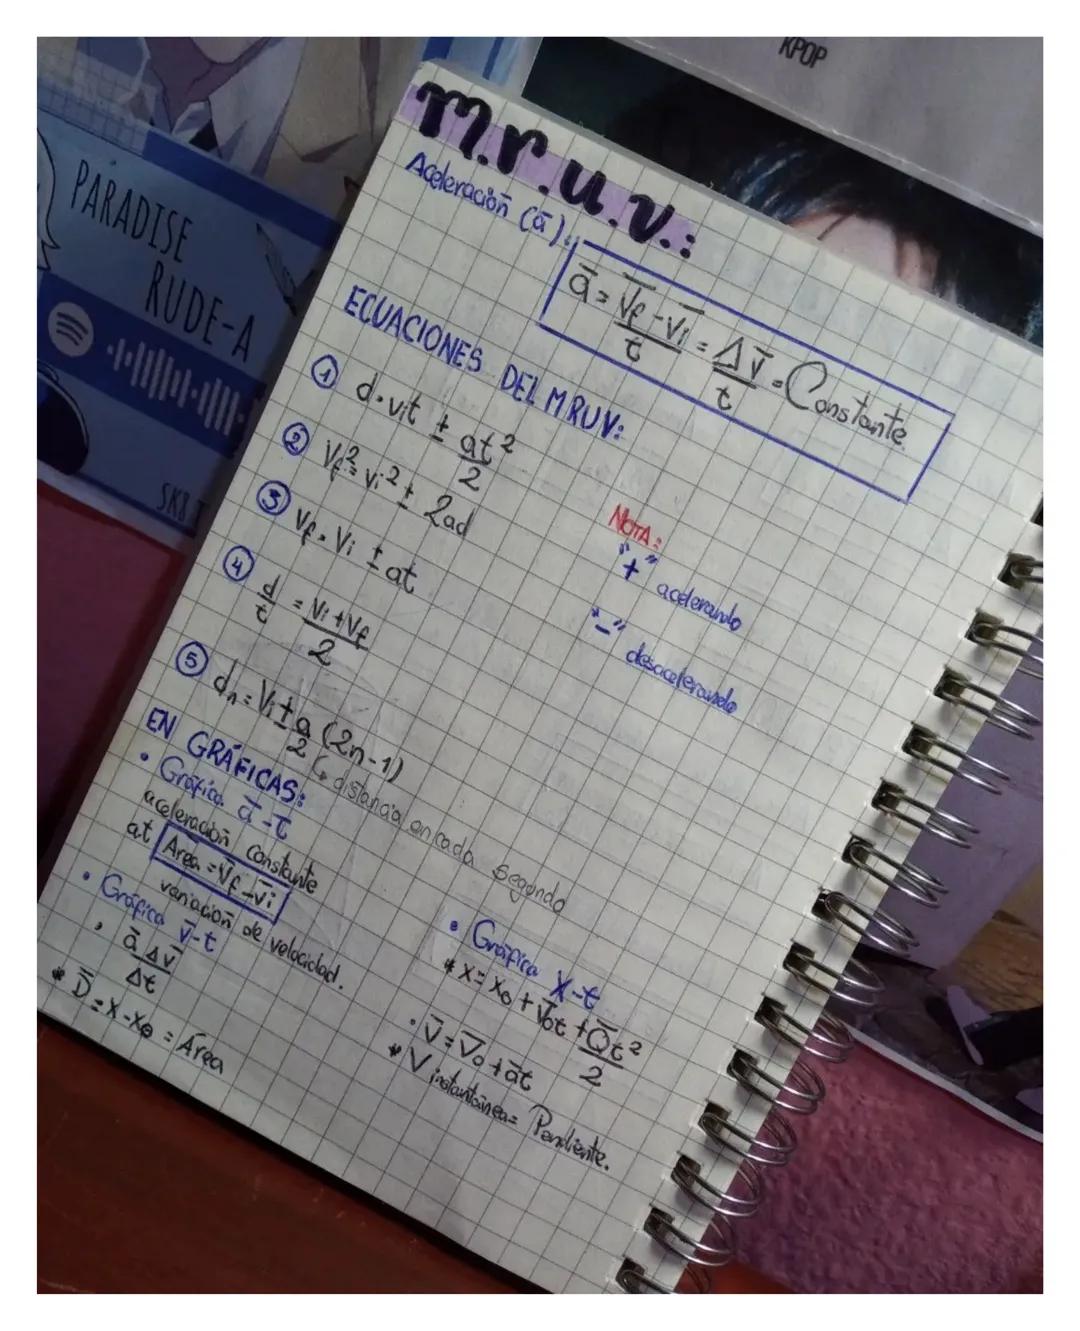 KPOP
PARADISE
RUDE-A
SK8
M.r.u.v.:
Aceleración (ā):
ā = V̄f - V̄i / t = ΔV̄ / t = Constante
ECUACIONES DEL MRUV:
① d = vit ± at² / 2
② Vf² = Vi² ± 2ad
③ Vf = Vi ± at
④ d / t = Vi + Vf / 2
⑤ dn = Vi ± a / 2 (2n-1)
↳ distancia en cada segundo
NOTA:
"+" acelerando
"-" desacelerando
EN GRÁFICAS:
• Gráfica ā-t
aceleración constante
at Área = V̄f - V̄i
variación de velocidad.
• Gráfica v̄-t
ā ΔV̄ / Δt
* D̄ = X - X0 = Área
• Gráfica X-t
* X = X0 + V̄0t + āt² / 2
• V̄ = V̄0 + āt
* V instantánea = Pendiente.